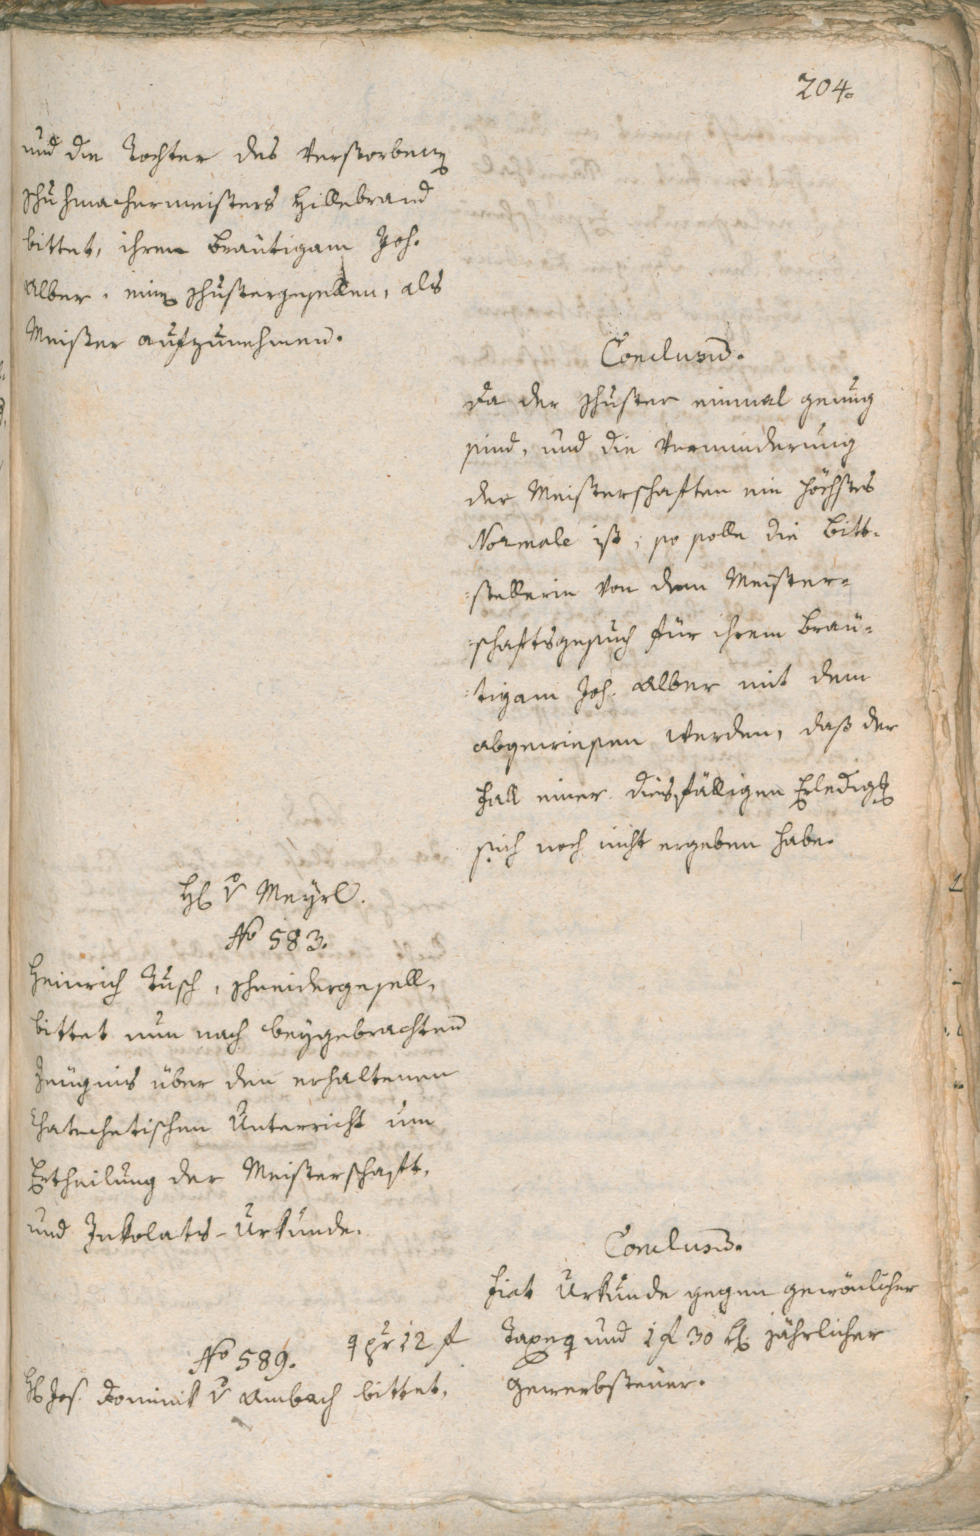 204.
und die Tochter des Verstorbenen
Schuhmachermeisters Hillebrand
bittet, ihrem Bräutigam Joh.
Alber, einen Schustergesellen, als
Meister aufzunehmen.
Conclusum.
Da der Schuster einmal genug
sind, und die Verminderung
der Meisterschaften ein höchstes
Normale ist, so solle die Bitt-
stellerin von dem Meister-
schaftsgesuch für ihrem Bräu-
tigam Joh. Alber mit dem
abgewiesen werden, daß der
Fall einer diesfälligen Erledigung
sich noch nicht ergeben habe.
H. v Meyrl.
No 583.
Heinrich Tusch, Schneidergesell,
bittet nun nach beygebrachten
Zeugnis über den erhaltenen
Chatechetischen Unterricht um
Ertheilung der Meisterschaft,
und Inkolats-Urkunde.
Conclusum.
Fiat Urkunde gegen gewönlicher
Taxe q pr 12 f und 1 f 30 kr jährlicher
Gewerbsteuer.
No 589.
H. Jos. Dominik v Ambach bittet,